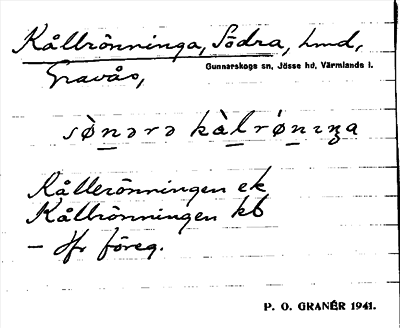 Kålrönninga, Södra, lmd,
Gravås,
Gunnarskogs sn, Jösse hd, Värmlands l.
sò̱nərə kà̱lrò̱nɪŋa
Kållerönningen ek
Kålrönningen kb
– Jfr föreg.
P. O. GRANÉR 1941.